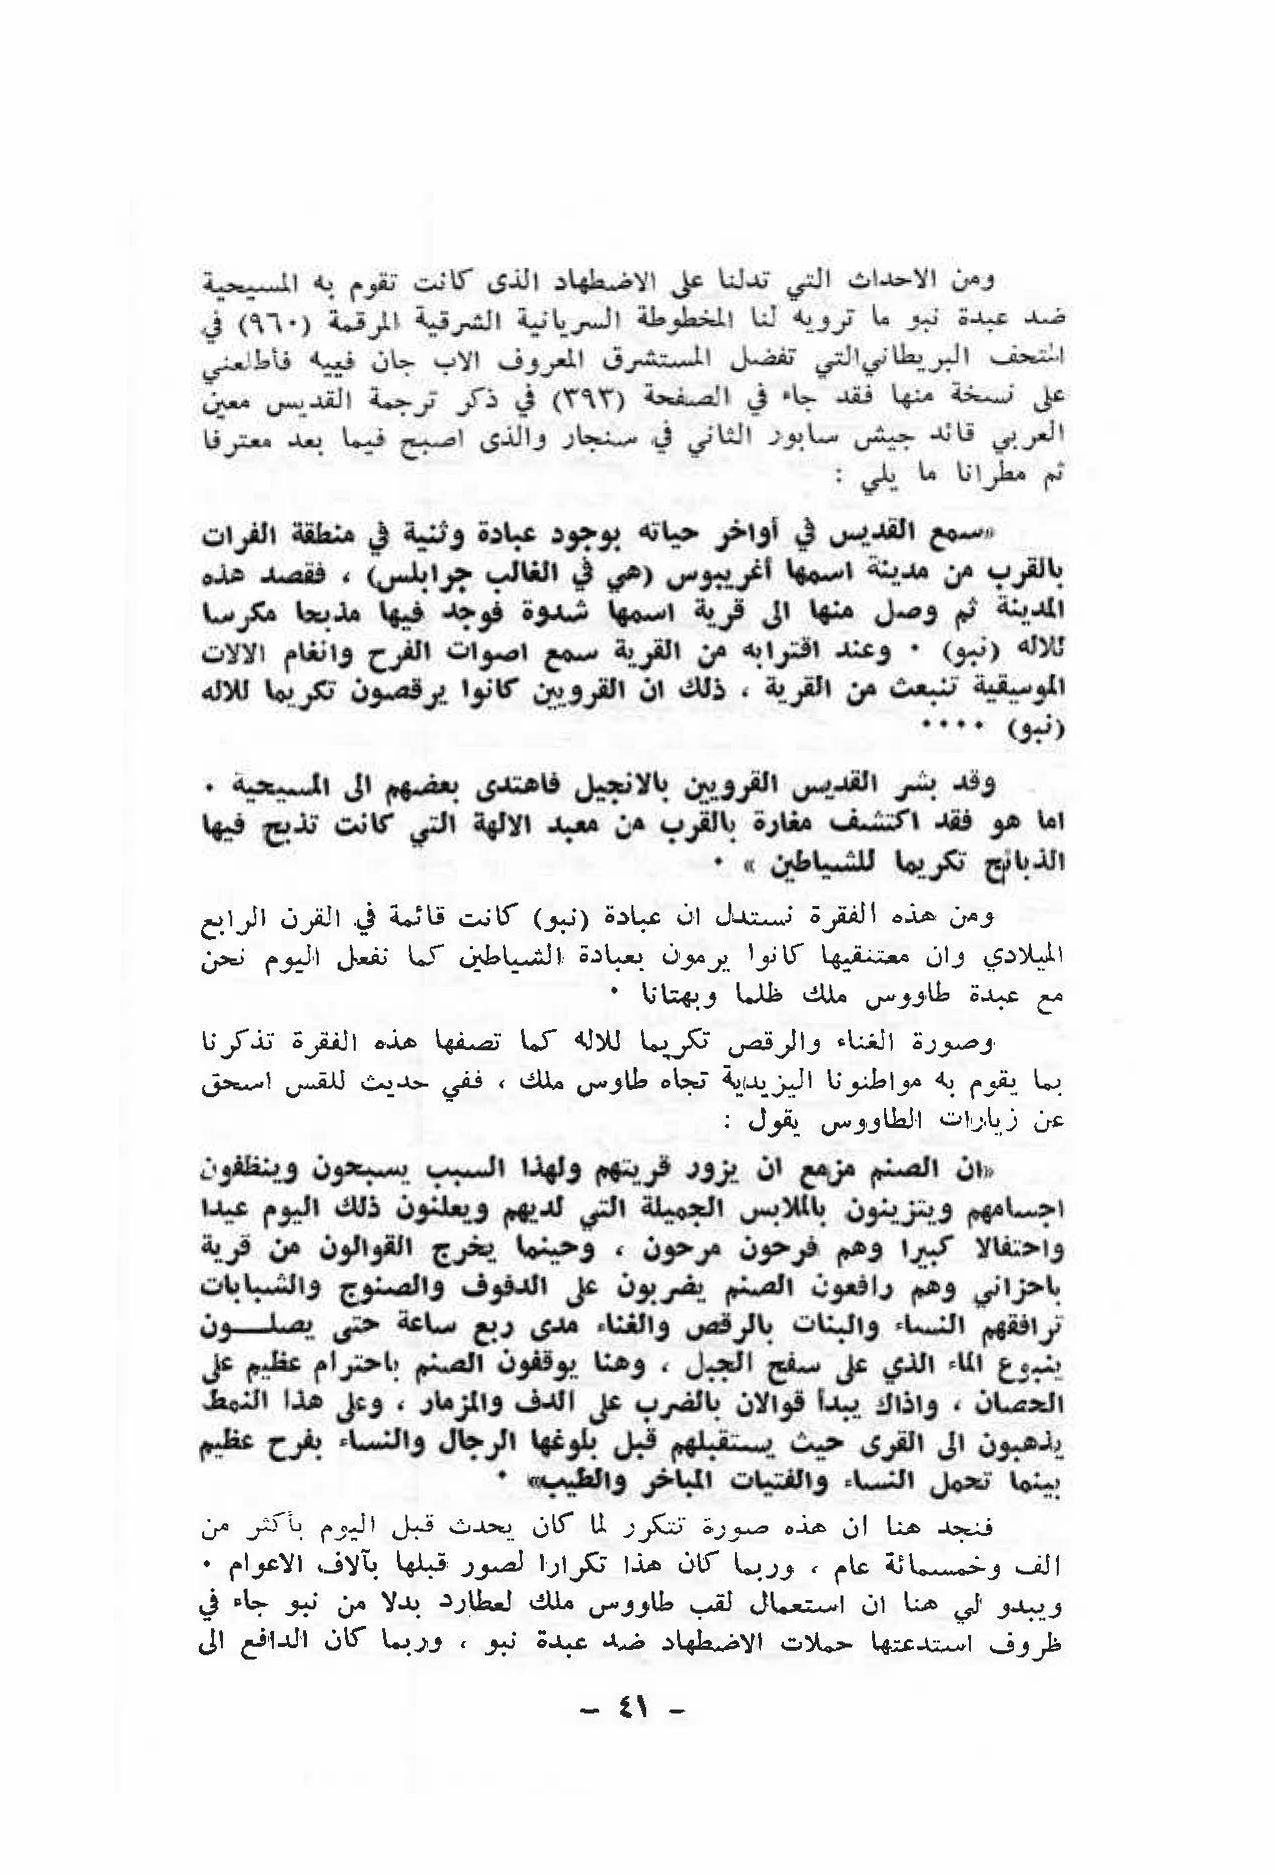 ومن الاحداث التي تدلنا على الاضطهاد الذى كانت تقوم به المسيحية
ضد عبدة نبو ما ترويه لنا المخطوطة السريانية الشرقية المرقمة (٩٦٠) في
المتحف البريطاني التي تفضل المستشرق المعروف الاب جان فييه فأطلعني
على نسخة منها فقد جاء في الصفحة (٣٩٣) في ذكر ترجمة القديس معين
العربي قائد جيش سابور الثاني في سنجار والذى اصبح فيما بعد معترفا
ثم مطرانا ما يلي :
«سمع القديس في أواخر حياته بوجود عبادة وثنية في منطقة الفرات
بالقرب من مدينة اسمها أغريبوس (هي في الغالب جرابلس) ، فقصد هذه
المدينة ثم وصل منها الى قرية اسمها شدوة فوجد فيها مذبحا مكرسا
للاله (نبو) ٠ وعند اقترابه من القرية سمع اصوات الفرح وانغام الالات
الموسيقية تنبعث من القرية ، ذلك ان القرويين كانوا يرقصون تكريما للاله
(نبو) ٠٠٠٠
وقد بشر القديس القرويين بالانجيل فاهتدى بعضهم الى المسيحية ٠
اما هو فقد اكتشف مغارة بالقرب من معبد الالهة التي كانت تذبح فيها
الذبائح تكريما للشياطين » ٠
ومن هذه الفقرة نستدل ان عبادة (نبو) كانت قائمة في القرن الرابع
الميلادي وان معتنقيها كانوا يرمون بعبادة الشياطين كما نفعل اليوم نحن
مع عبدة طاووس ملك ظلما وبهتانا ٠
وصورة الغناء والرقص تكريما للاله كما تصفها هذه الفقرة تذكرنا
بما يقوم به مواطنونا اليزيدية تجاه طاوس ملك ، ففي حديث للقس اسحق
عن زيارات الطاووس يقول :
«ان الصنم مزمع ان يزور قريتهم ولهذا السبب يسبحون وينظفون
اجسامهم ويتزينون بالملابس الجميلة التي لديهم ويعلنون ذلك اليوم عيدا
واحتفالا كبيرا وهم فرحون مرحون ، وحينما يخرج القوالون من قرية
باحزاني وهم رافعون الصنم يضربون على الدفوف والصنوج والشبابات
ترافقهم النساء والبنات بالرقص والغناء مدى ربع ساعة حتى يصلـــون
ينبوع الماء الذي على سفح الجبل ، وهنا يوقفون الصنم باحترام عظيم على
الحصان ، واذاك يبدأ قوالان بالضرب على الدف والمزمار ، وعلى هذا النمط
يذهبون الى القرى حيث يستقبلهم قبل بلوغها الرجال والنساء بفرح عظيم
بينما تحمل النساء والفتيات المباخر والطيب» ٠
فنجد هنا ان هذه صورة تتكرر لما كان يحدث قبل اليوم بأكثر من
الف وخمسمائة عام ، وربما كان هذا تكرارا لصور قبلها بآلاف الاعوام ٠
ويبدو لي هنا ان استعمال لقب طاووس ملك لعطارد بدلا من نبو جاء في
ظروف استدعتها حملات الاضطهاد ضد عبدة نبو ، وربما كان الدافع الى
– ٤١ –